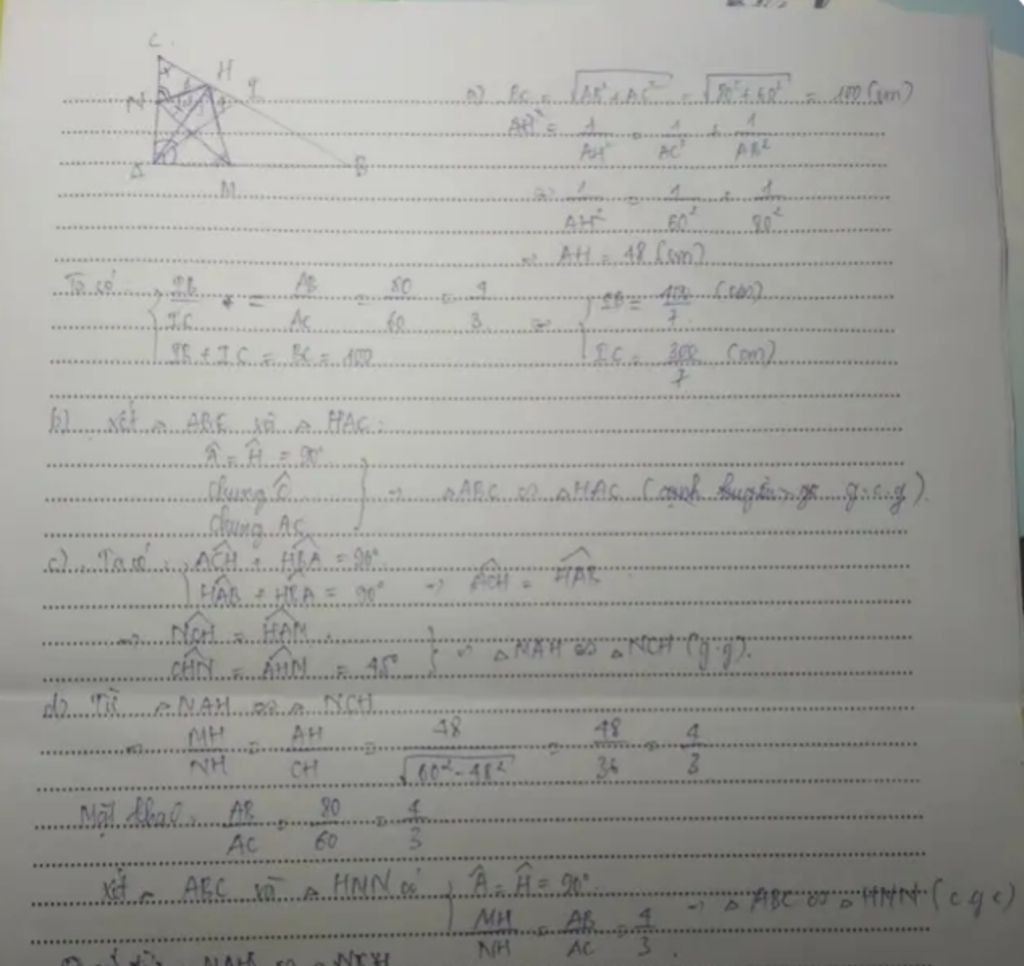 C
H
N
A
M
B
a) BC = √(AB² + AC²) = √(80² + 60²) = 100 (cm)
1/AH² = 1/AC² + 1/AB²
=> 1/AH² = 1/60² + 1/80²
=> AH = 48 (cm)
Ta có: { IB/IC = AB/AC = 80/60 = 4/3 => { IB = 400/7 (cm)
IB + IC = BC = 100 IC = 300/7 (cm)
b) xét △ ABC và △ HAC:
Â = Ĥ = 90°
chung Ĉ } => △ABC ∽ △HAC (cạnh huyền g.c.g)
chung AC
c) Ta có: { ACH + HBA = 90°
HAB + HBA = 90° => ACH = HAB
=> NCH = HAM
CHN = AHM = 45° } => △ MAH ∽ △ NCH (g.g).
d) Từ △ MAH ∽ △ NCH
=> MH/NH = AH/CH = 48/√(60² - 48²) = 48/36 = 4/3
Mặt khác, AB/AC = 80/60 = 4/3
xét △ ABC và △ HMN có { Â = Ĥ = 90°
MH/NH = AB/AC = 4/3 => △ ABC ∽ △ HMN (c g c)